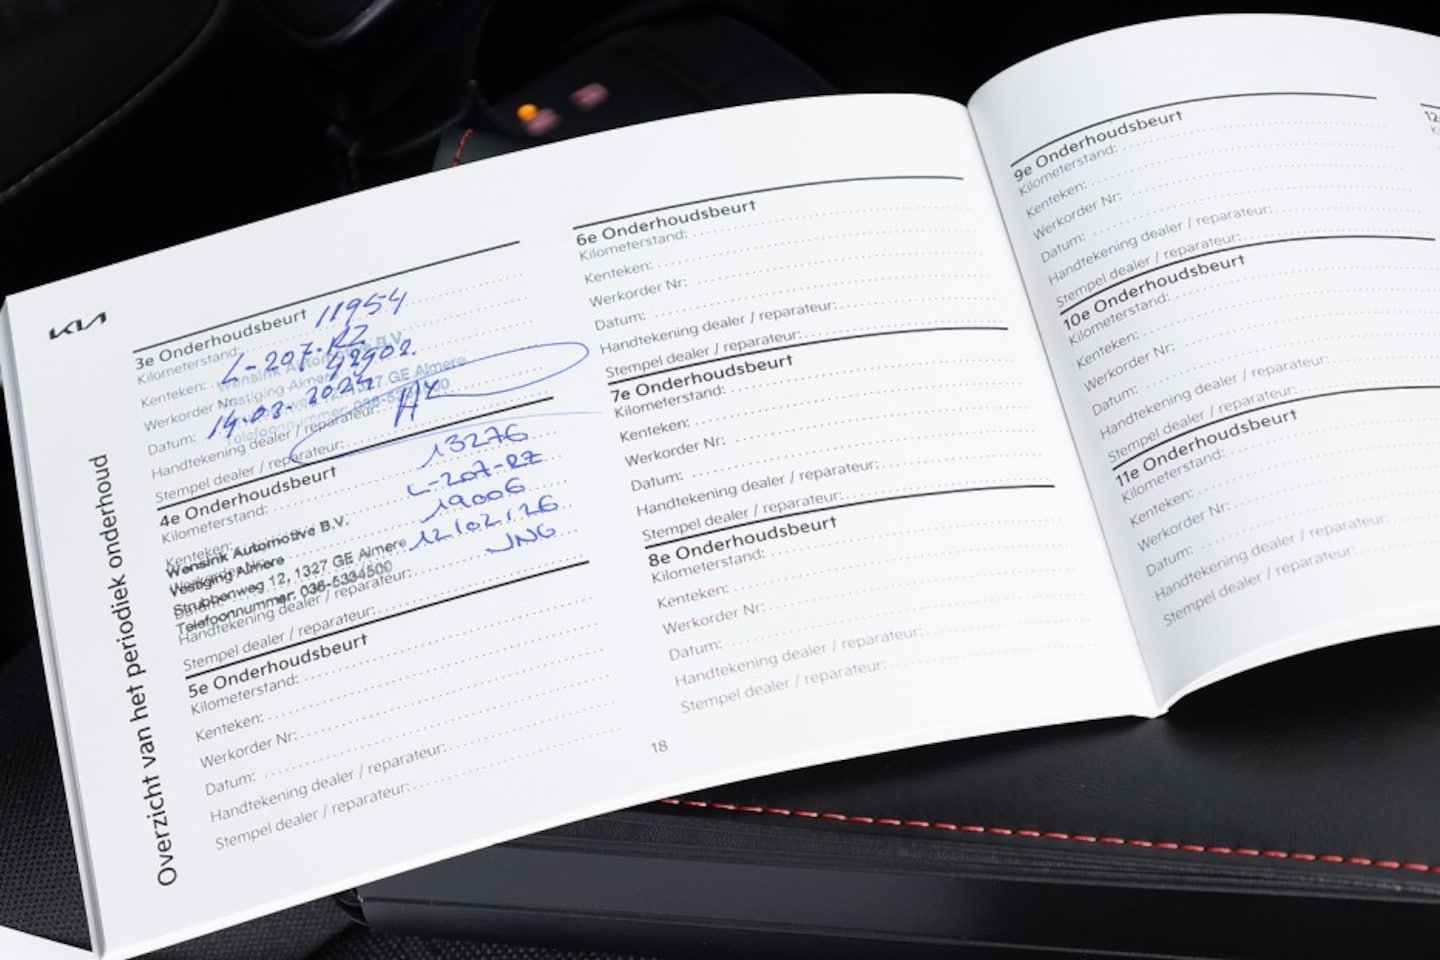 KIA
Overzicht van het periodiek onderhoud
3e Onderhoudsbeurt
Kilometerstand: 11954
Kenteken: L-207-RZ
Werkorder Nr:
Datum: 14.03-
Handtekening dealer / reparateur:
Stempel dealer / reparateur:
Wensink Automotive B.V.
Vestiging Almere
1327 GE Almere
Telefoonnummer: 036-5334500
4e Onderhoudsbeurt
Kilometerstand: 13276
Kenteken: L-207-RZ
19006
Datum: 12/02/26
Handtekening dealer / reparateur: JNG
Stempel dealer / reparateur:
Wensink Automotive B.V.
Vestiging Almere
Strubbenweg 12, 1327 GE Almere
Telefoonnummer: 036-5334500
5e Onderhoudsbeurt
Kilometerstand:
Kenteken:
Werkorder Nr:
Datum:
Handtekening dealer / reparateur:
Stempel dealer / reparateur:
6e Onderhoudsbeurt
Kilometerstand:
Kenteken:
Werkorder Nr:
Datum:
Handtekening dealer / reparateur:
Stempel dealer / reparateur:
7e Onderhoudsbeurt
Kilometerstand:
Kenteken:
Werkorder Nr:
Datum:
Handtekening dealer / reparateur:
Stempel dealer / reparateur:
8e Onderhoudsbeurt
Kilometerstand:
Kenteken:
Werkorder Nr:
Datum:
Handtekening dealer / reparateur:
Stempel dealer / reparateur:
18
9e Onderhoudsbeurt
Kilometerstand:
Kenteken:
Werkorder Nr:
Datum:
Handtekening dealer / reparateur:
Stempel dealer / reparateur:
10e Onderhoudsbeurt
Kilometerstand:
Kenteken:
Werkorder Nr:
Datum:
Handtekening dealer / reparateur:
Stempel dealer / reparateur:
11e Onderhoudsbeurt
Kilometerstand:
Kenteken:
Werkorder Nr:
Datum:
Handtekening dealer / reparateur:
Stempel dealer / reparateur: